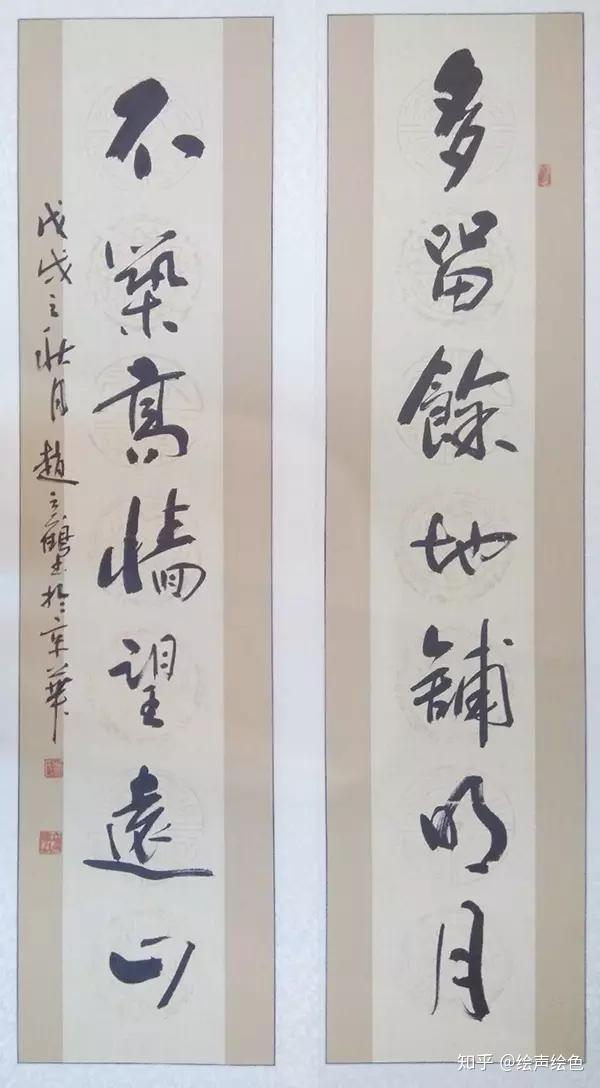 多留餘地舖明月
不築高牆望遠山
戊戌之月 趙於京華
知乎 @绘声绘色